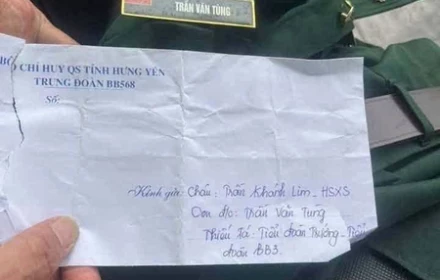 TRẦN VĂN TÙNG
BỘ CHỈ HUY QS TỈNH HƯNG YÊN
TRUNG ĐOÀN BB568
Số:
Kính gửi: Cháu: Trần Khánh Lim - HSXS
Con đ/c: Trần Văn Tùng
Thiếu tá: Tiểu đoàn Trưởng - Tiểu
đoàn BB3